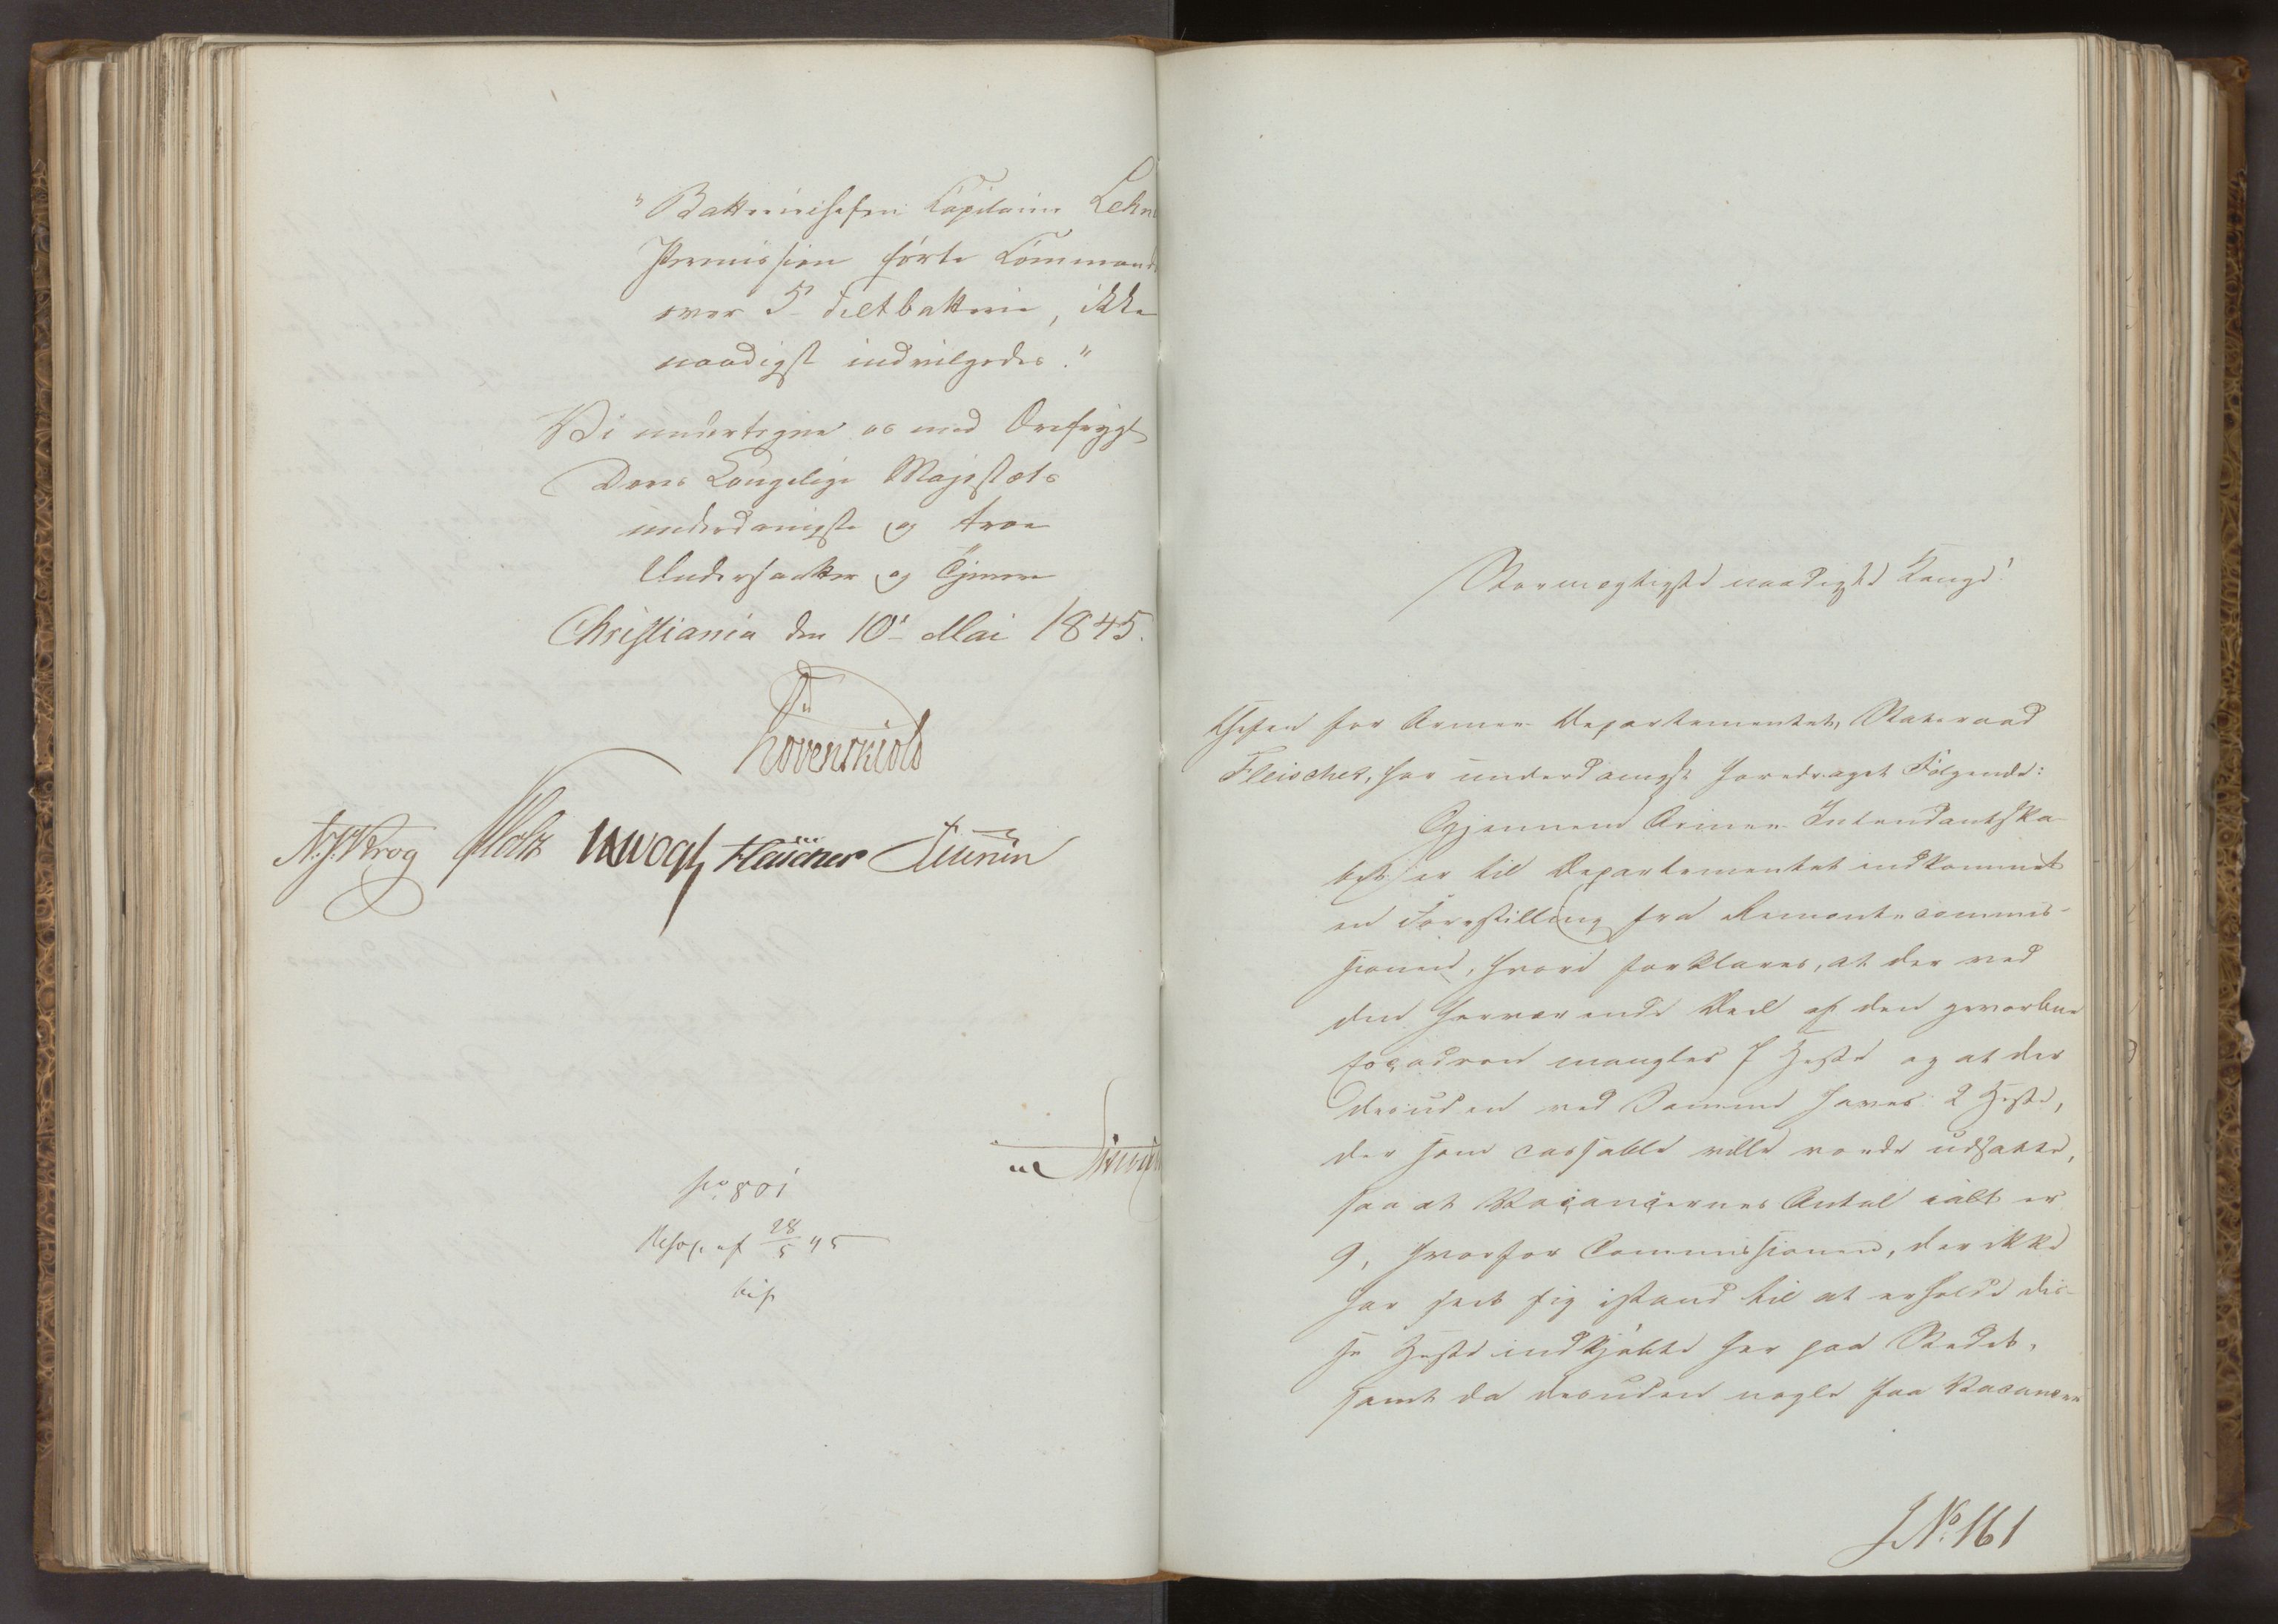 "Batteriechefen Capitaine Lehn
Permission förte Commando
over 5 Feltbatterie, ikke
naadigst indvilgedes."
Vi undertegne os med Ærefrygt
Deres Kongelige Majestæts
underdanigste og troe
Undersaatter og Tjenere
Christiania den 10de Mai 1845.
Løvenskiold
N. J. Krog Holst JH Vogt Fleischer
No 801
Resol. af 28/5 45
Stormægtigste naadigste Konge!
Chefen for Armee Departementet, Statsraad
Fleischer, har underdanigst foredraget Følgende:
Gjennem Armee-Intendantska-
bet er til Departementet indkommet
en Forestilling fra Remontecommis-
sionen, hvori forklares, at der ved
den herværende Deel af den gevorbne
Escadron mangles 7 Heste og at der
desuden ved Samme haves 2 Heste,
der som cassable ville vorde udsatte,
saa at Vacancernes Antal ialt er
9, hvorfor Commissionen, der ikke
har seet sig istand til at erholde dis-
se Heste indkjøbte her paa Stedet,
samt da desuden nogle faa Vacancer
J. No. 161